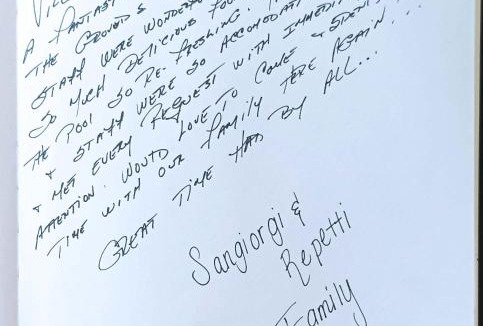 A FANTAST
THE GROUNDS
STAFF WERE WONDERFU
SO MUCH DELICIOUS FOO
THE POOL SO RE-FRESHING.
& STAFF WERE SO ACCOMODATI
& MET EVERY REQUEST WITH IMMEDIA
ATTENTION. WOULD LOVE TO COME & SPEND
TIME WITH OUR FAMILY HERE AGAIN...
GREAT TIME HAD BY ALL...
Sangiorgi &
Repetti
Family